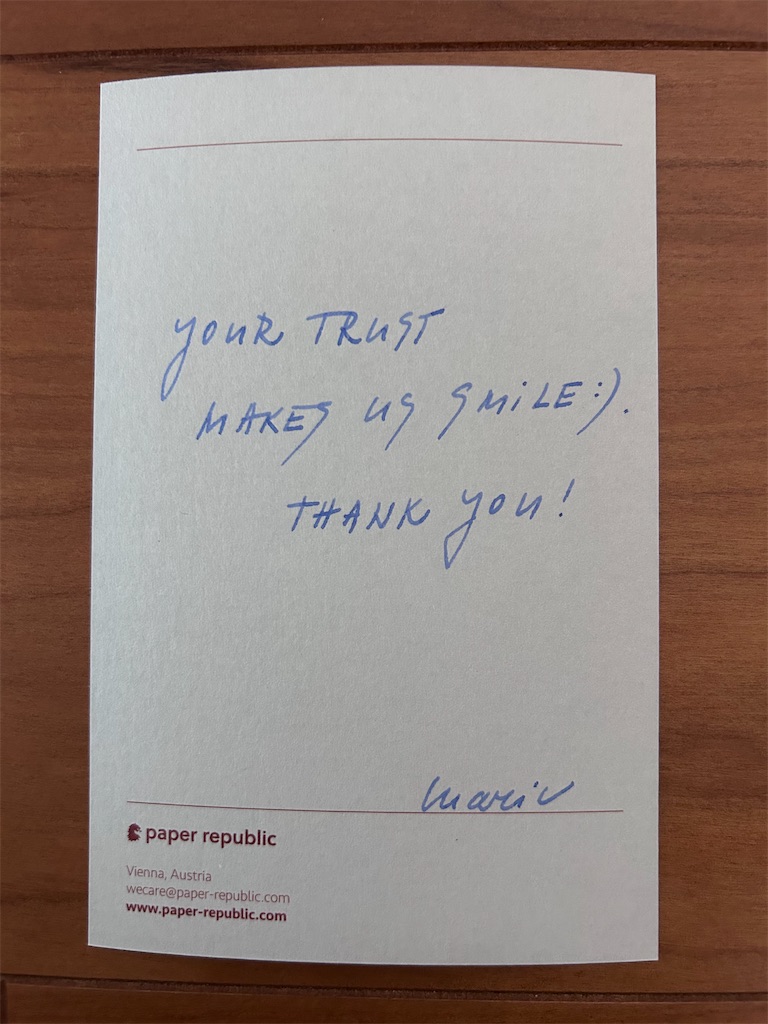 YOUR TRUST
MAKES US SMiLE:).
THANK YOU!
paper republic
Vienna, Austria
wecare@paper-republic.com
www.paper-republic.com